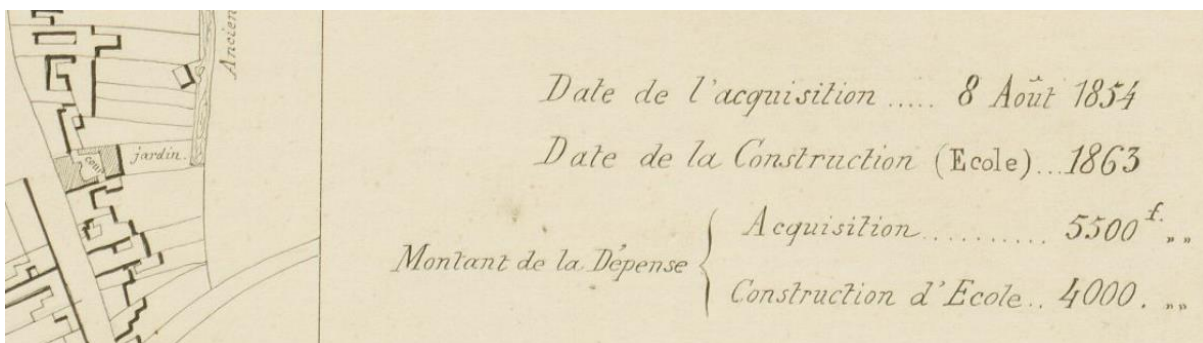 Ancien
cour
jardin.
Date de l'acquisition ..... 8 Août 1854
Date de la Construction (Ecole)...1863
Montant de la Dépense { Acquisition........... 5500 f. „„
Construction d'Ecole.. 4000. „„